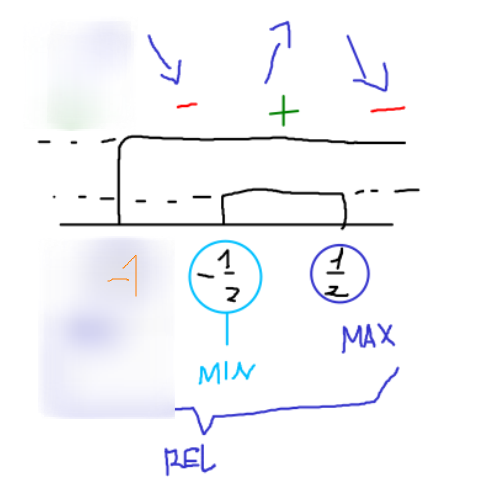 - + -
-1 -1/2 1/2
MIN MAX
REL